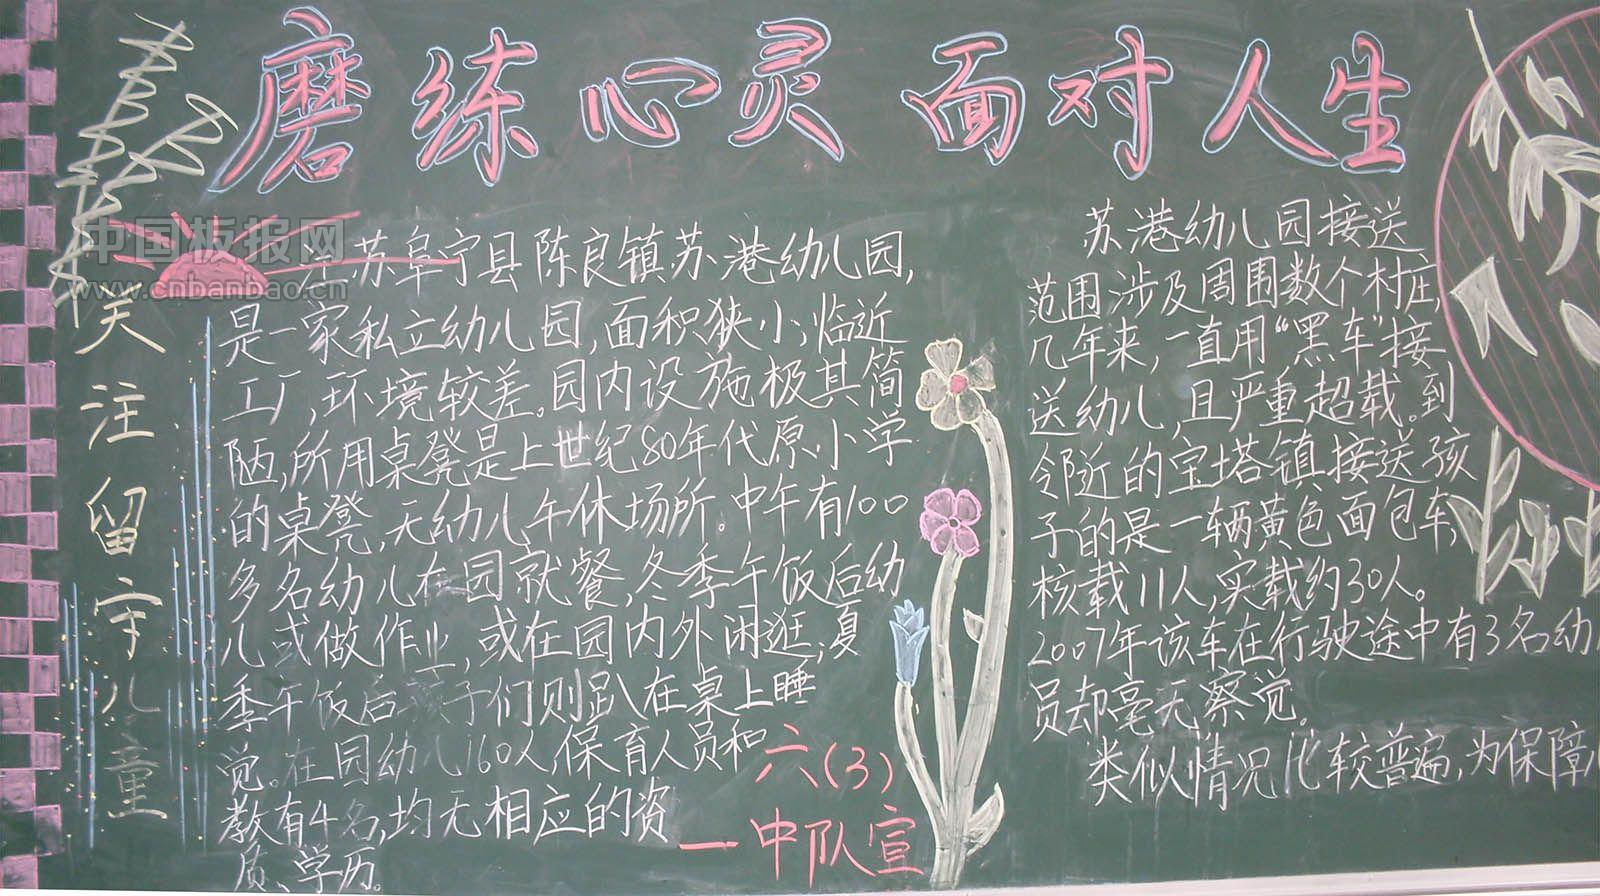 磨练心灵 面对人生
中国板报网
www.cnbanbao.cn
关注留守儿童
苏阜宁县陈良镇苏港幼儿园,
是一家私立幼儿园,面积狭小,临近
工厂,环境较差。园内设施极其简
陋,所用桌凳是上世纪80年代原小学
的桌凳,无幼儿午休场所。中午有100
多名幼儿在园就餐,冬季午饭后幼
儿或做作业,或在园内外闲逛,夏
季午饭后孩子们则趴在桌上睡
觉。在园幼儿160人,保育人员和
教有4名,均无相应的资
质、学历。
六(3)
一中队宣
苏港幼儿园接送
范围涉及周围数个村庄,
几年来,一直用“黑车”接
送幼儿,且严重超载。到
邻近的宝塔镇接送孩
子的是一辆黄色面包车,
核载11人,实载约30人。
2007年该车在行驶途中有3名幼
员却毫无察觉。
类似情况比较普遍,为保障